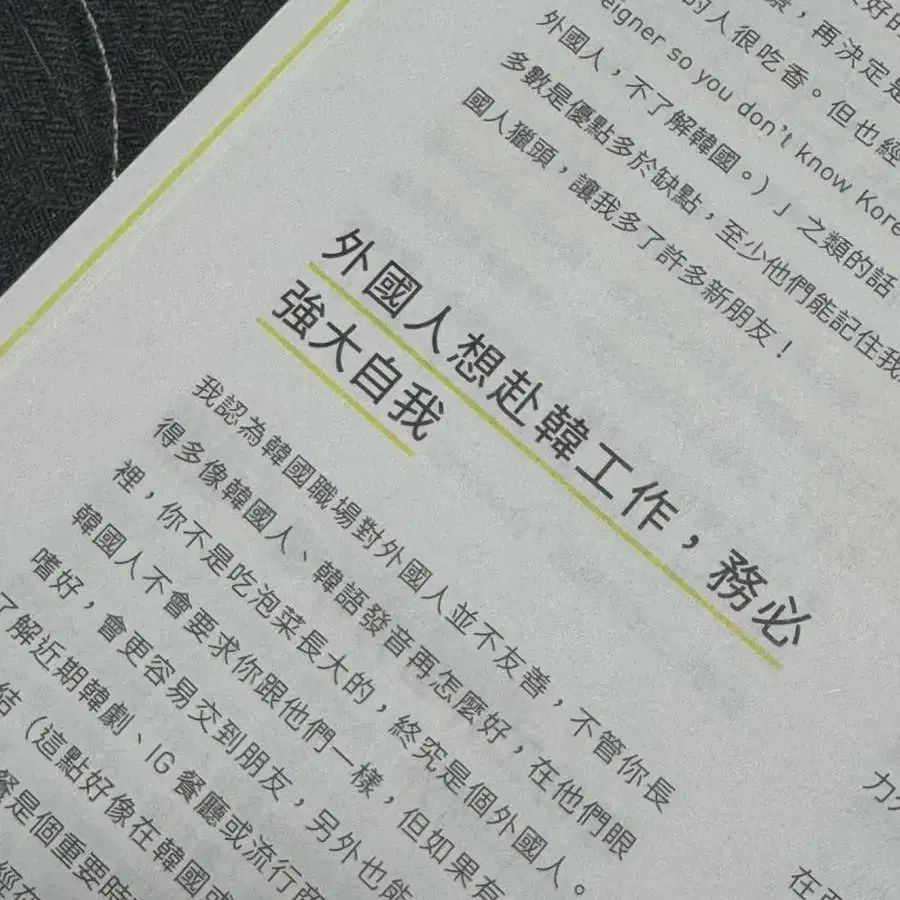 好的
，再決定是
的人很吃香。但也經
eigner so you don't know Kore
外國人，不了解韓國。）」之類的話
多數是優點多於缺點，至少他們能記住我
國人獵頭，讓我多了許多新朋友！
外國人想赴韓工作，務必
強大自我
我認為韓國職場對外國人並不友善，不管你長
得多像韓國人、韓語發音再怎麼好，在他們眼
裡，你不是吃泡菜長大的，終究是個外國人。
韓國人不會要求你跟他們一樣，但如果有
嗜好，會更容易交到朋友，另外也能
了解近期韓劇、IG 餐廳或流行商
結（這點好像在韓國或
餐是個重要時
力
在